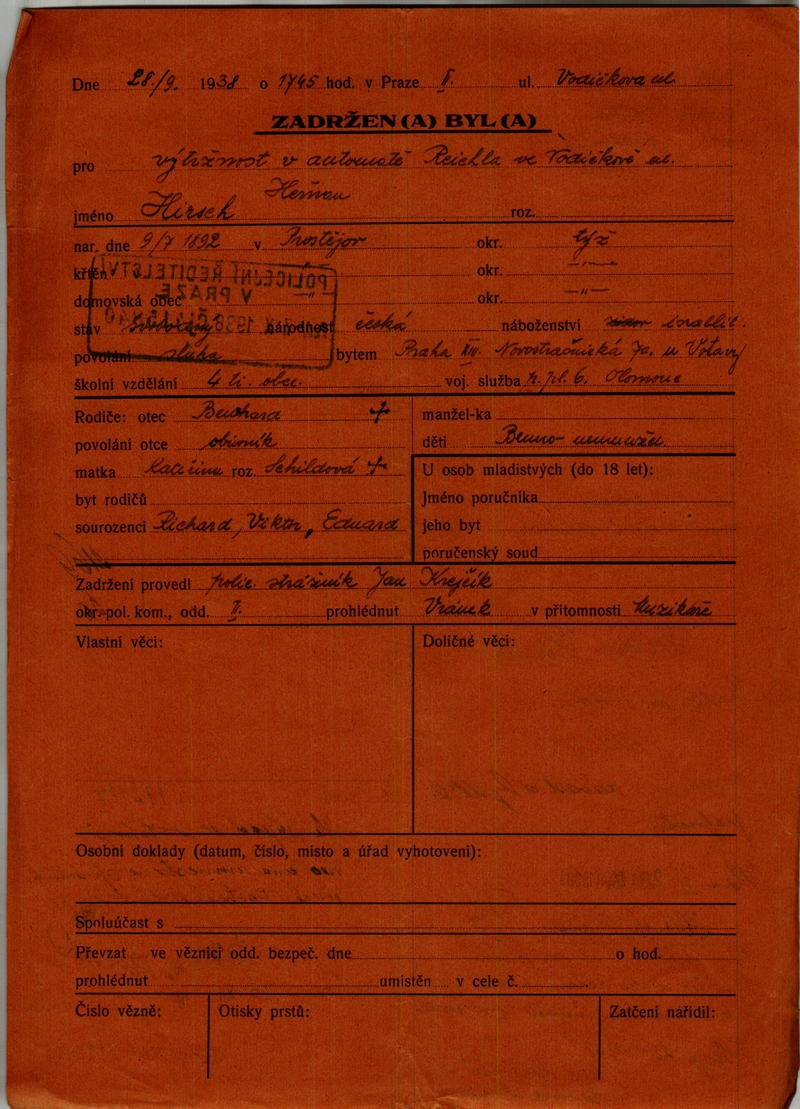 Dne 28./9. 1938 o 1745 hod. v Praze II. ul. Vodičkova ul.
ZADRŽEN(A) BYL(A)
pro výtržnost v automatě Reichla ve Vodičkově ul.
jméno Hirsch Heřman roz.
nar. dne 9/7 1892 v Prostějov okr. týž
křtěn okr. —"—
domovská obec —"— okr. —"—
POLICEJNÍ ŘEDITELSTVÍ
V PRAZE
stav národnost česká náboženství israelit.
povolání sluha bytem Praha XIII. Novostrašnická u Votavy
školní vzdělání 4 tř. obec. voj. služba p. pl. 6. Olomouc
Rodiče: otec +
povolání otce obuvník
matka Kateřina roz. Schildová +
byt rodičů
sourozenci Richard, Viktor, Eduard
manžel-ka
děti Benno nemanžel.
U osob mladistvých (do 18 let):
Jméno poručníka
jeho byt
poručenský soud
Zadržení provedl polic. strážník Jan Krejčík
okr. pol. kom., odd. II. prohlédnut Vránek v přítomnosti Muzikáře
Vlastní věci:
Doličné věci:
Osobní doklady (datum, číslo, místo a úřad vyhotovení):
Spoluúčast s
Převzat ve věznici odd. bezpeč. dne o hod.
prohlédnut umístěn v cele č.
Číslo vězně:
Otisky prstů:
Zatčení nařídil: